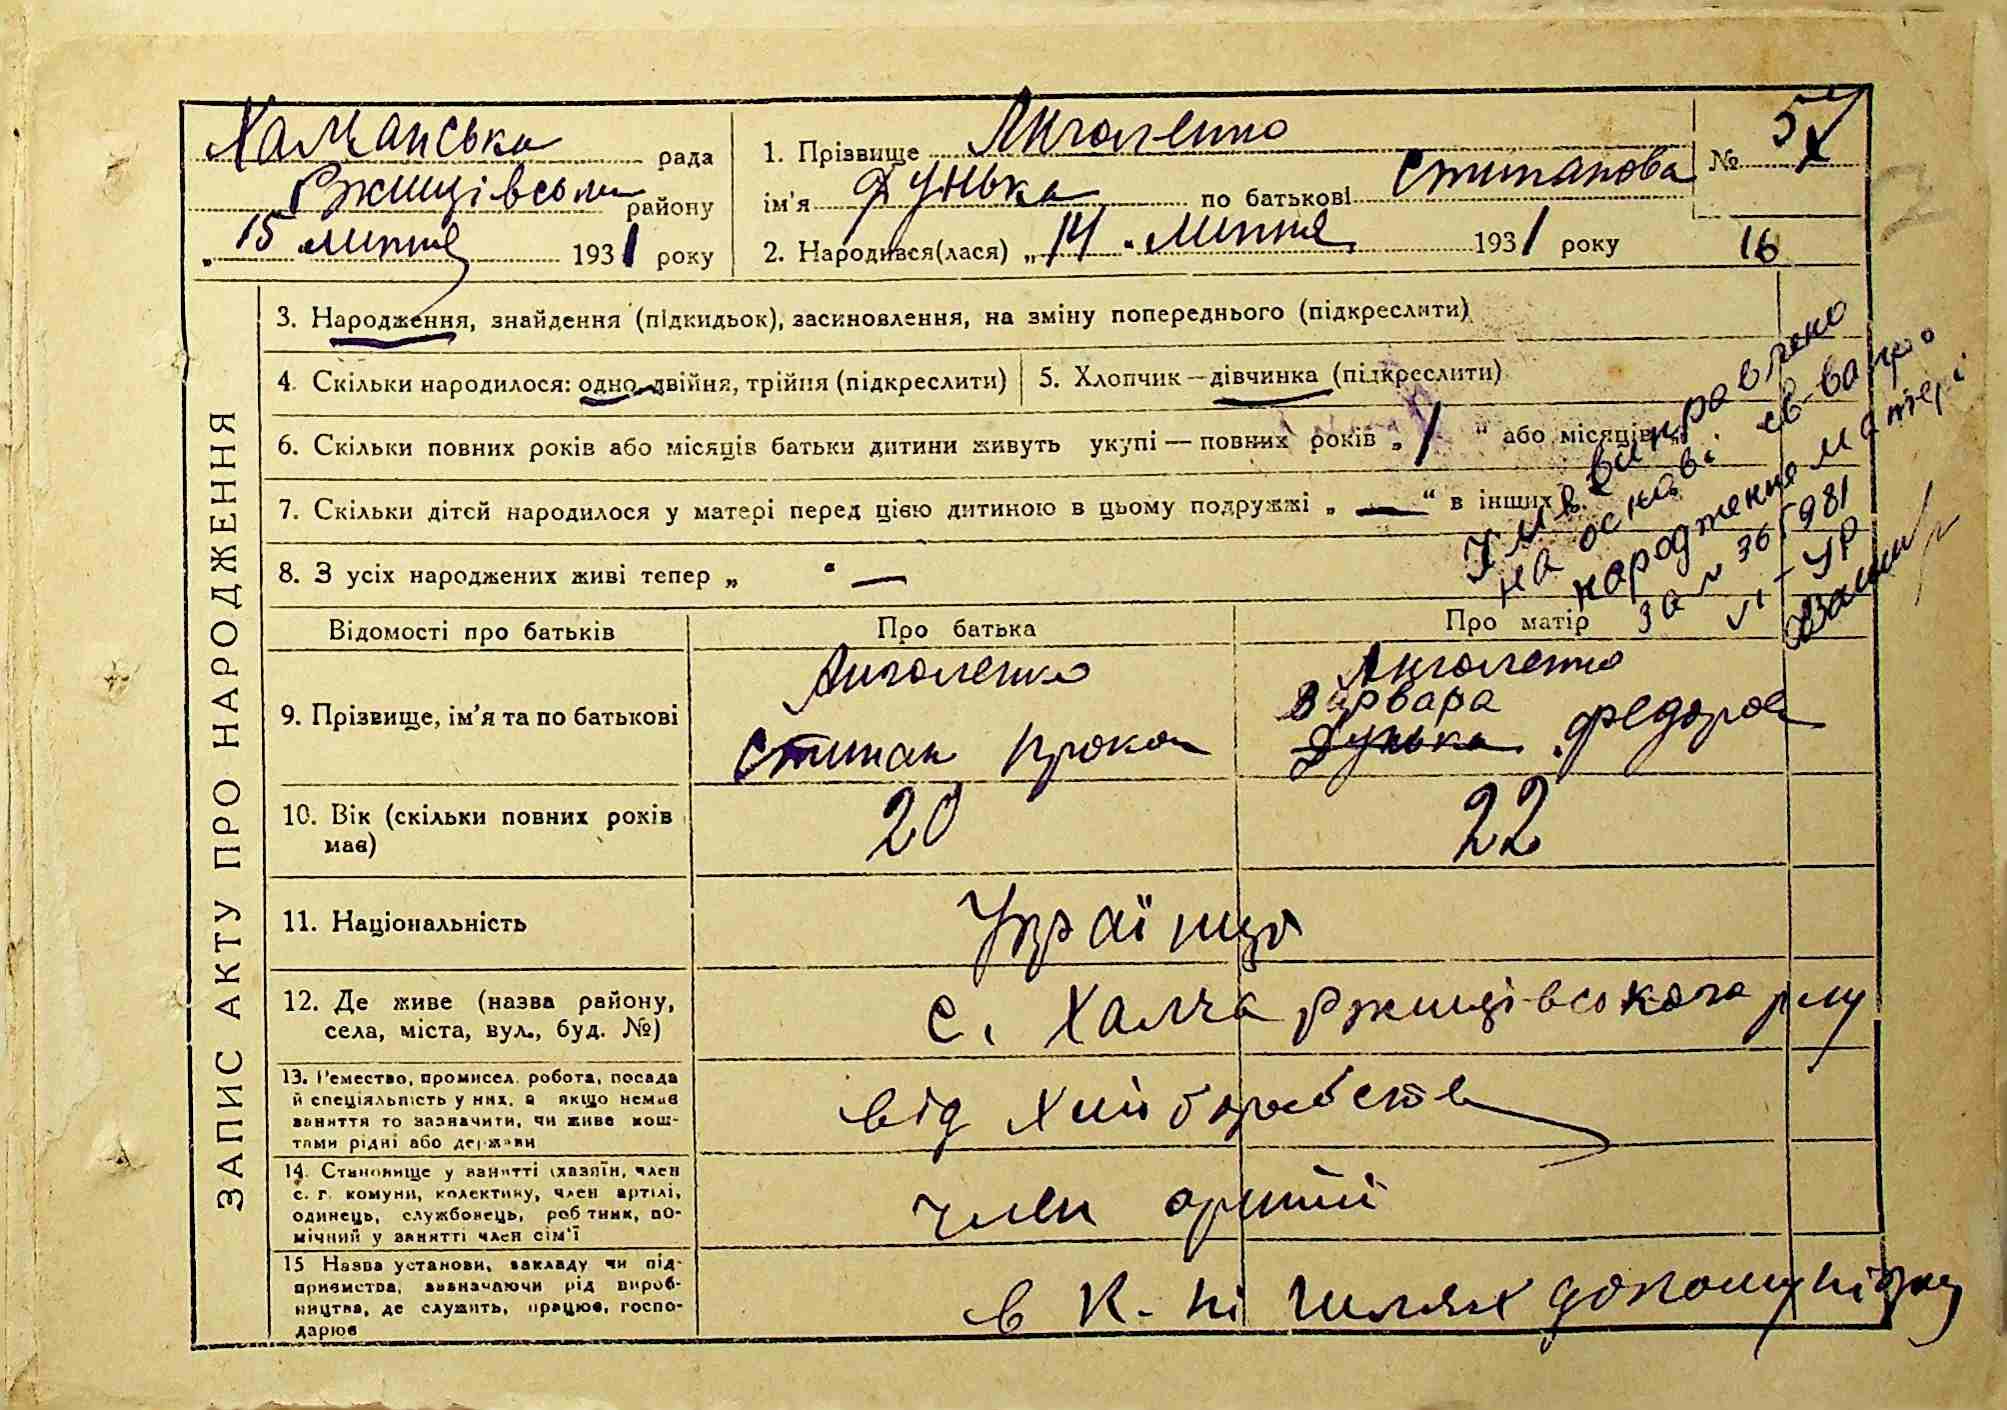 Халчанська рада
Ржищівського району
„15 липня 1931 року
1. Прізвище Янголенко
ім'я Дунька по батькові Стипанова
2. Народився(лася) „14 „ липня 1931 року
№ 57
16
ЗАПИС АКТУ ПРО НАРОДЖЕННЯ
3. Народження, знайдення (підкидьок), засиновлення, на зміну попереднього (підкреслити)
4. Скільки народилося: одно, двійня, трійня (підкреслити)
5. Хлопчик — дівчинка (підкреслити)
6. Скільки повних років або місяців батьки дитини живуть укупі — повних років „ 1 “ або місяців „
7. Скільки дітей народилося у матері перед цією дитиною в цьому подружжі „ — “ в інших
8. З усіх народжених живі тепер „ “ —
виправлено
на основі св-ва про
народження матері
за № 365981
Відомості про батьків
Про батька
Про матір
9. Прізвище, ім'я та по батькові
Янголенко
Стипан Проко
Янголенко
Варвара
Дунька Федоров
10. Вік (скільки повних років
має)
20
22
11. Національність
Українці
12. Де живе (назва району,
села, міста, вул., буд. №)
с. Халча Ржищівського р-ну
13. Ремество, промисел, робота, посада
й спеціяльність у них, а якщо немає
заняття то зазначити, чи живе кош-
тами рідні або держави
від Хліборобства
14. Становище у занятті (хазяїн, член
с. г. комуни, колективу, член артілі,
одинець, службовець, робітник, по-
мічний у занятті член сім'ї
член артілі
15 Назва установи, закладу чи під-
приємства, визначаючи рід вироб-
ництва, де служить, працює, госпо-
дарює
в К-пі Шлях до комунізму